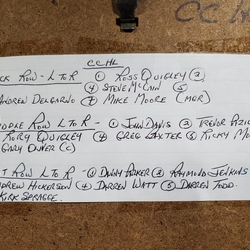 CCHL
ROW - L TO R - ① ROSS QUIGLEY ②
④ STEVE MCCAIN ⑤
ANDREW DELGARNO ⑦ MIKE MOORE (MGR)
ROW L TO R - ① JOHN DAVIS ③ TREVOR
RORY QUIGLEY ④ GREG BAXTER ⑤ RICKY
GARY OLIVER (C)
ROW L TO R - ① DANNY PARKER ② RAYMOND JENKINS
HICKERSON ④ DARREN WATT ⑤ DARREN TODD
KIRK SPRAGGE.
CC